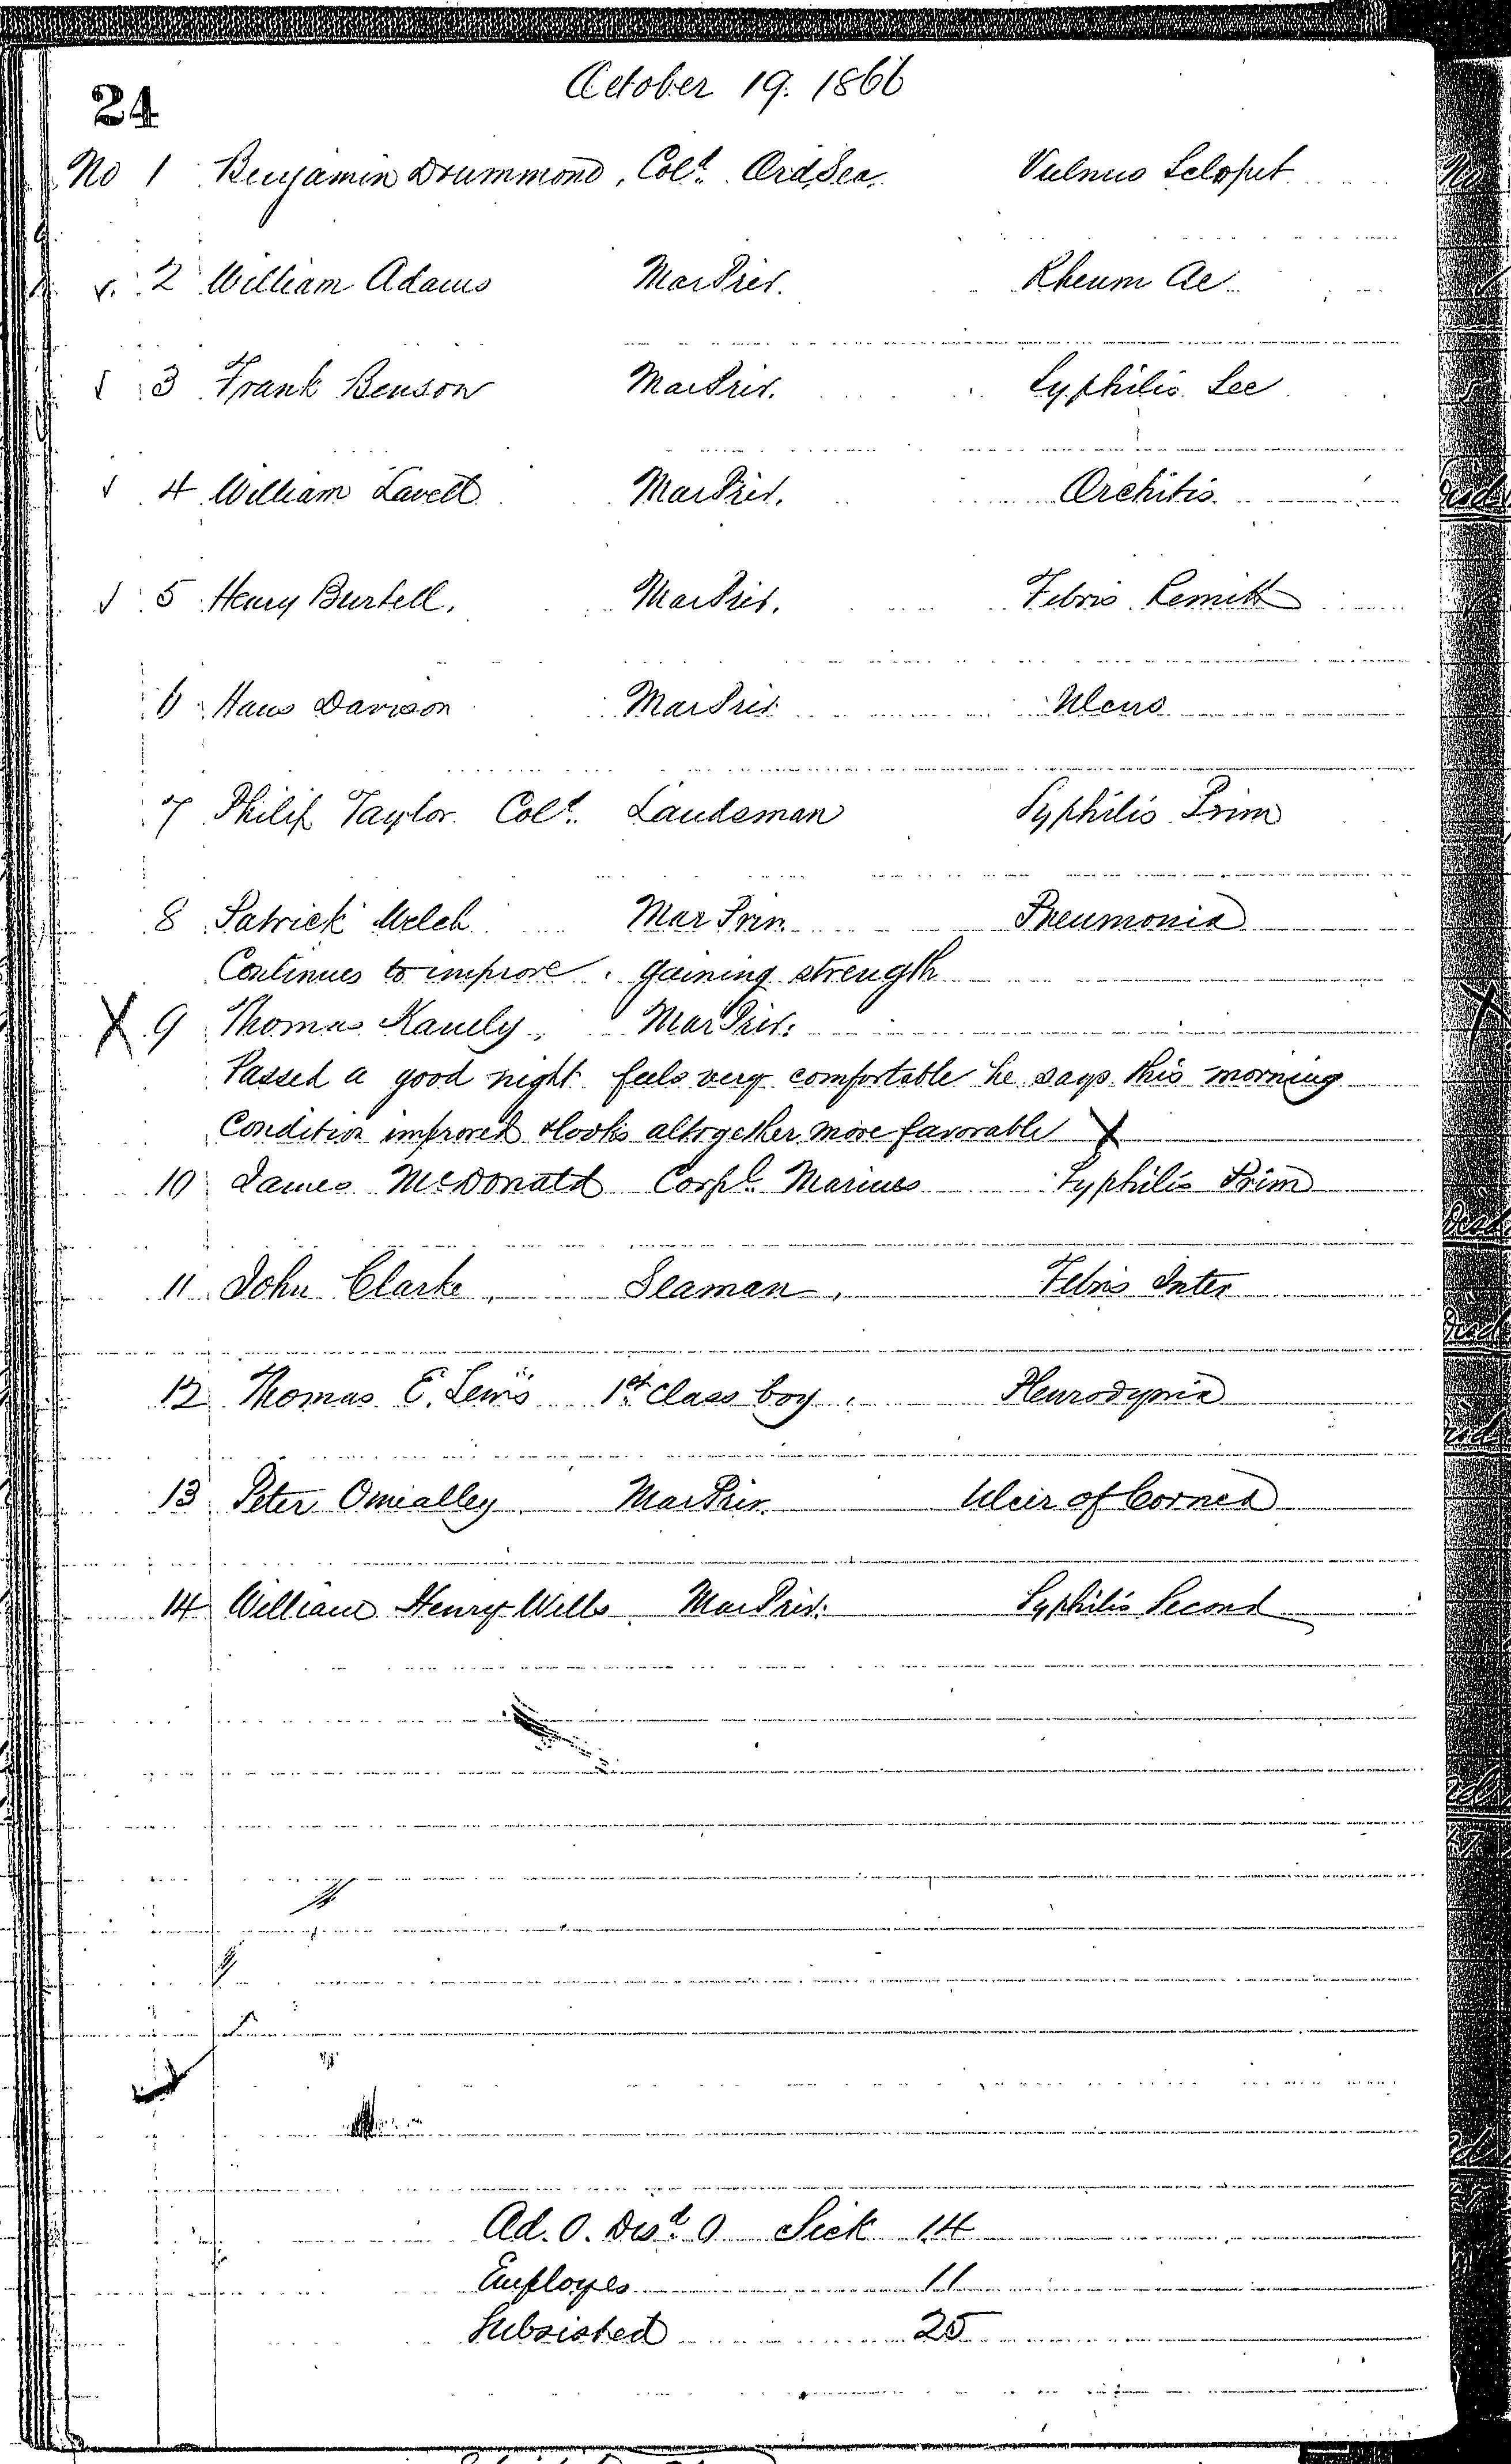 24
October 19. 1866
No 1 Benjamin Drummond, Col.d Ord. Sea. Vulnus Sclopet
2 William Adams Mar Priv. Rheum Ac
3 Frank Benson Mar Priv. Syphilis Sec
4 William Lavell Mar Priv. Orchitis
5 Henry Burtell. Mar Priv. Febris Remitt
6 Hans Davison Mar Priv Ulcus
7 Philip Taylor Col.d Landsman Syphilis Prim
8 Patrick Welch Mar Priv. Pneumonia
Continues to improve. gaining strength
X 9 Thomas Kanely, Mar Priv.
Passed a good night feels very comfortable he says this morning
Condition improved & looks altogether more favorable X
10 James McDonald Corpl. Marines Syphilis Prim
11 John Clarke, Seaman, Febris Inter
12 Thomas E. Lewis 1st Class boy. Pleurodynia
13 Peter Omealley Mar Priv. Ulcer of Cornea
14 William Henry Wills Mar Priv. Syphilis Second
Ad. 0. Disd. 0 Sick 14
Employes 11
Subsisted 25